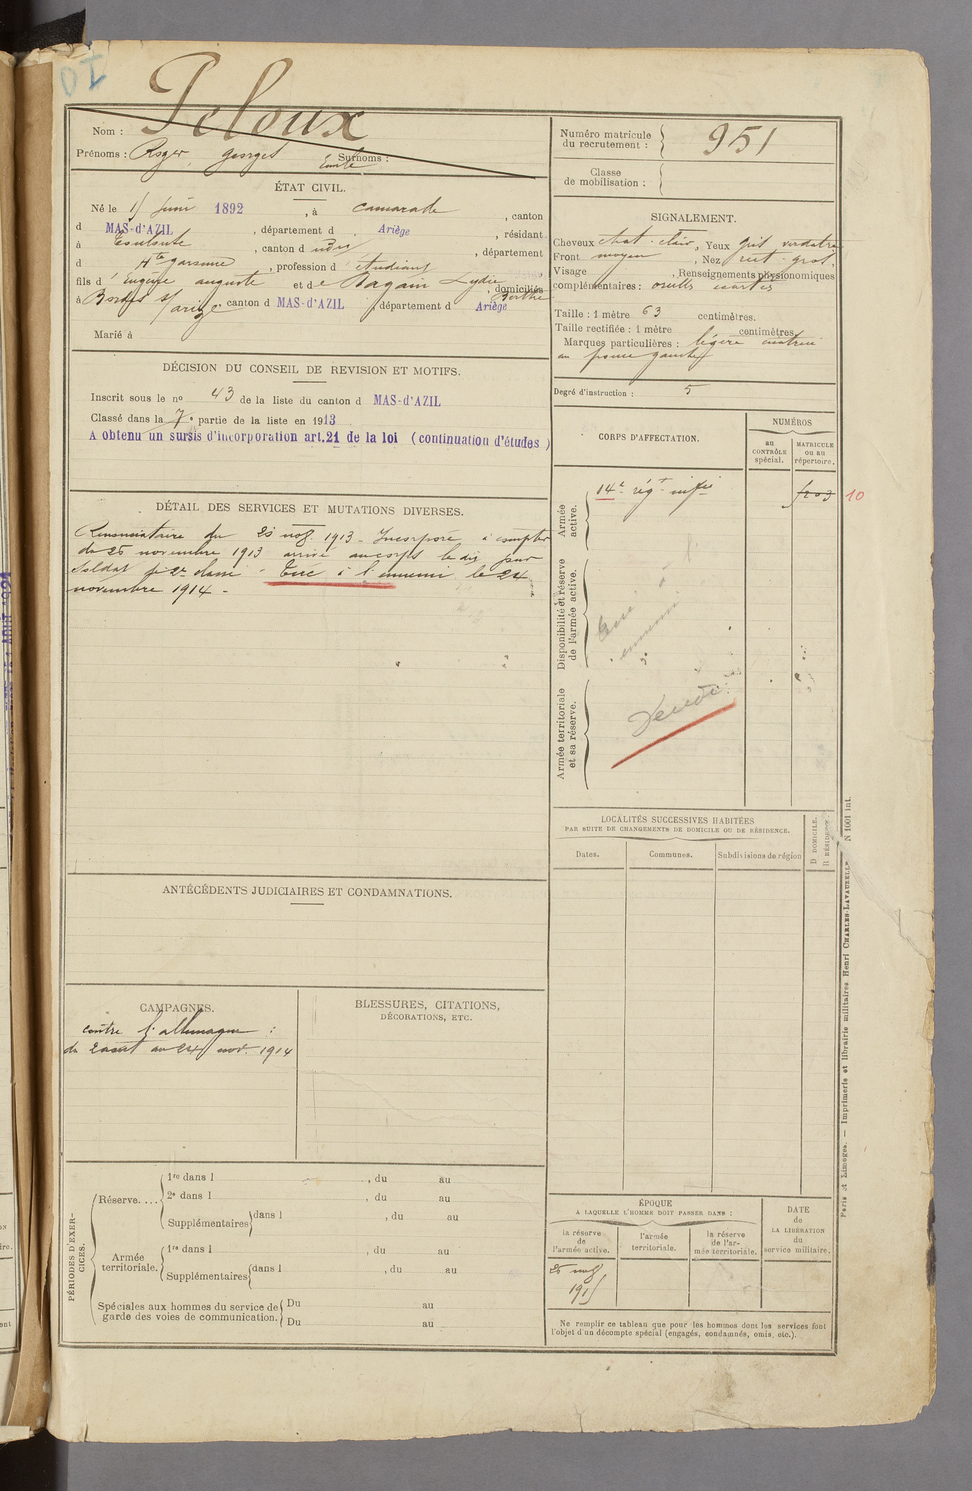 Peloux
Nom :
Prénoms : Roger, Georges Surnoms :
Emile
ÉTAT CIVIL.
Né le 15 Juin 1892, à Camarade, canton
d MAS-d'AZIL, département d Ariège, résidant
à Toulouse, canton d , département
d Hte Garonne, profession d étudiant
fils d' Eugène Auguste et de Bagain Lydie, domiciliés
Berthe
à Bordes s/ Arize canton d MAS-d'AZIL, département d Ariège
Marié à
DÉCISION DU CONSEIL DE REVISION ET MOTIFS.
Inscrit sous le no 43 de la liste du canton d MAS-d'AZIL
Classé dans la 7e partie de la liste en 1913
A obtenu un sursis d'incorporation art.21 de la loi (continuation d'études)
DÉTAIL DES SERVICES ET MUTATIONS DIVERSES.
Renonciataire du 1913 - Incorporé à compter
du 26 novembre 1913 arrivé au corps le dit jour
Soldat de 2e classe - Tué à l'ennemi le 24
novembre 1914 -
ANTÉCÉDENTS JUDICIAIRES ET CONDAMNATIONS.
CAMPAGNES.
contre l'allemagne :
du 2 août au 24 nov. 1914
BLESSURES, CITATIONS,
DÉCORATIONS, ETC.
PÉRIODES D'EXER-
CICES.
Réserve....
1re dans l , du au
2e dans l , du au
Supplémentaires dans l , du au
Armée
territoriale.
1re dans l , du au
Supplémentaires dans l , du au
Spéciales aux hommes du service de
garde des voies de communication.
Du au
Du au
Numéro matricule
du recrutement :
951
Classe
de mobilisation :
SIGNALEMENT.
Cheveux chat-clair, Yeux gris verdatre
Front moyen, Nez rect. gros.
Visage , Renseignements physionomiques
complémentaires : oreilles écartées
Taille : 1 mètre 63 centimètres.
Taille rectifiée : 1 mètre centimètres
Marques particulières : légère cicatrice
au pouce gauche
Degré d'instruction : 5
CORPS D'AFFECTATION.
NUMÉROS
au
CONTRÔLE
spécial.
MATRICULE
ou au
répertoire.
Armée
active.
14e régt inftie
10
Disponibilité et réserve
de l'armée active.
Tué à l'
ennemi
Armée territoriale
et sa réserve.
LOCALITÉS SUCCESSIVES HABITÉES
PAR SUITE DE CHANGEMENTS DE DOMICILE OU DE RÉSIDENCE.
Dates.
Communes.
Subdivisions de région
D DOMICILE.
R RÉSIDENCE.
ÉPOQUE
A LAQUELLE L'HOMME DOIT PASSER DANS :
la réserve
de
l'armée active.
l'armée
territoriale.
la réserve
de l'ar-
mée territoriale.
DATE
de
LA LIBÉRATION
du
service militaire.
1915
Ne remplir ce tableau que pour les hommes dont les services font
l'objet d'un décompte spécial (engagés, condamnés, omis, etc.).
Paris et Limoges. — Imprimerie et librairie militaires Henri CHARLES-LAVAUZELLE. N 1001 int.